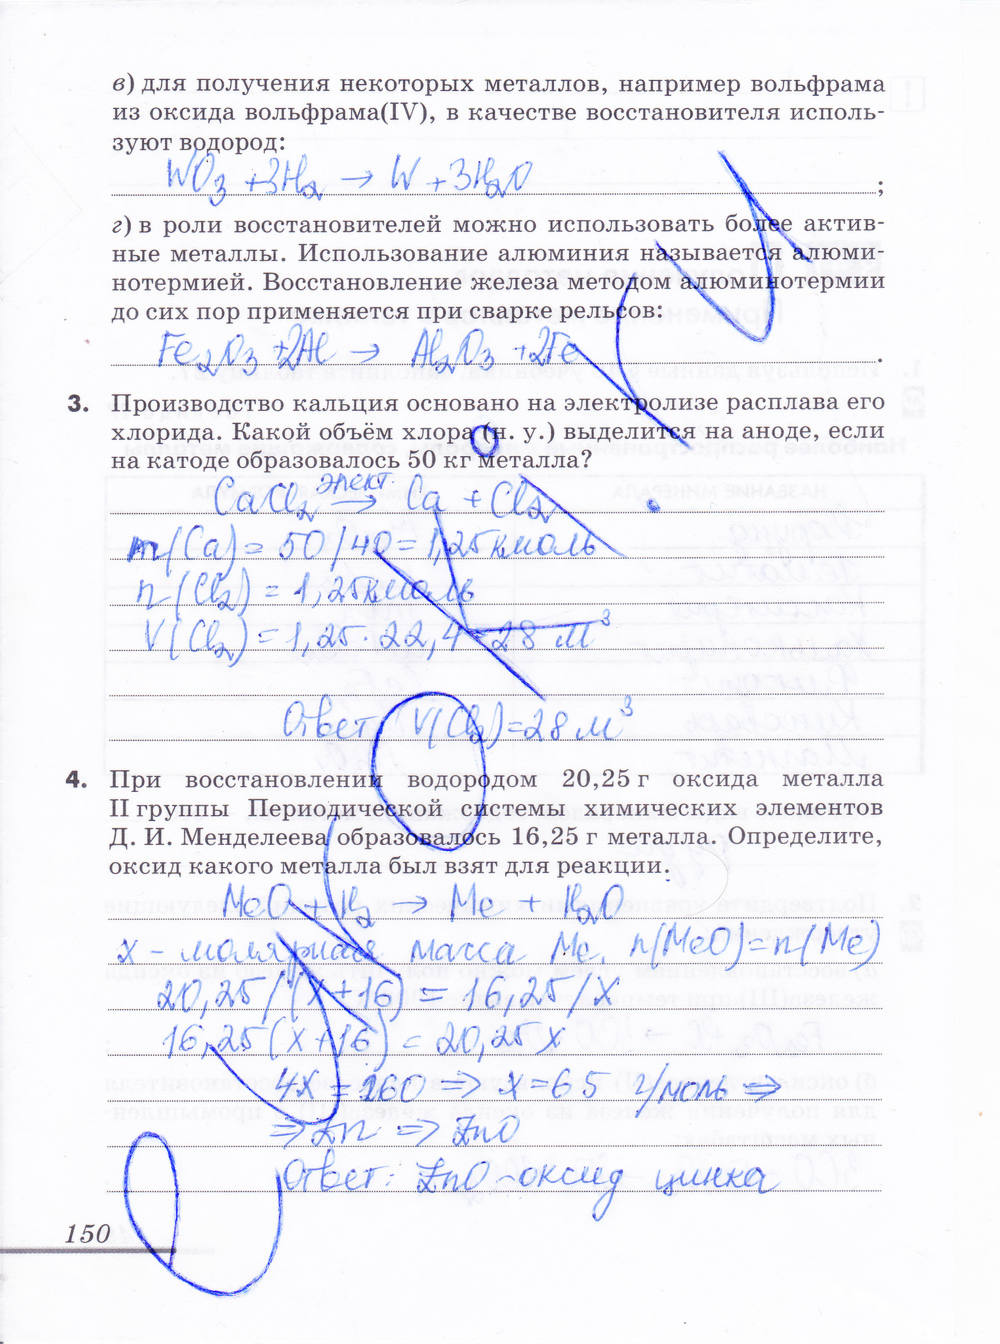 в) для получения некоторых металлов, например вольфрама
из оксида вольфрама(IV), в качестве восстановителя исполь-
зуют водород:
WO₃ + 3H₂ → W + 3H₂O ;
г) в роли восстановителей можно использовать более актив-
ные металлы. Использование алюминия называется алюми-
нотермией. Восстановление железа методом алюминотермии
до сих пор применяется при сварке рельсов:
Fe₂O₃ + 2Al → Al₂O₃ + 2Fe .
3. Производство кальция основано на электролизе расплава его
хлорида. Какой объём хлора (н. у.) выделится на аноде, если
на катоде образовалось 50 кг металла?
CaCl₂ элект. → Ca + Cl₂
n(Ca) = 50/40 = 1,25 кмоль
n(Cl₂) = 1,25 кмоль
V(Cl₂) = 1,25 · 22,4 = 28 м³
Ответ: V(Cl₂) = 28 м³
4. При восстановлении водородом 20,25 г оксида металла
II группы Периодической системы химических элементов
Д. И. Менделеева образовалось 16,25 г металла. Определите,
оксид какого металла был взят для реакции.
MeO + H₂ → Me + H₂O
x - молярная масса Me. n(MeO) = n(Me)
20,25/(x+16) = 16,25/x
16,25(x+16) = 20,25x
4x = 260 => x = 65 г/моль =>
=> Zn => ZnO
Ответ: ZnO - оксид цинка
150